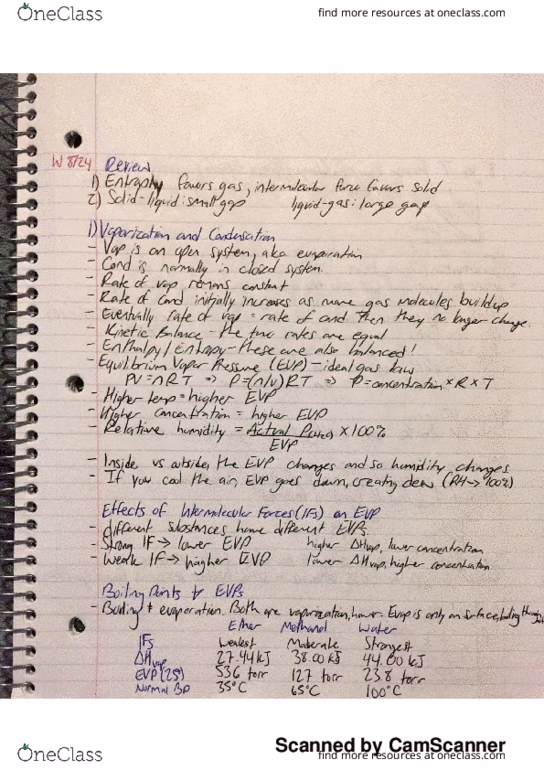 OneClass find more resources at oneclass.com
W 8/24 Review
1) Entropy favors gas, intermolecular force favors solid
2) Solid-liquid: small gap liquid-gas: large gap
1) Vaporization and Condensation
- Vap is an open system, aka evaporation
- Cond is normally in closed system.
- Rate of vap remains constant
- Rate of Cond initially increases as more gas molecules buildup
- Eventually rate of vap = rate of cond then they no longer change.
- Kinetic Balance - the two rates are equal
- Enthalpy/Entropy - these are also balanced!
- Equilibrium Vapor Pressure (EVP) - ideal gas law
PV=nRT => P=(n/V)RT => P=concentration × R × T
- Higher temp = higher EVP
- Higher concentration = higher EVP
- Relative humidity = Actual P(H2O) × 100%
EVP
- Inside vs outside, the EVP changes and so humidity changes
- If you cool the air, EVP goes down, creating dew (RH → 100%)
Effects of Intermolecular Forces (IFs) on EVP
- different substances have different EVPs
- Strong IF → lower EVP higher ΔHvap, lower concentration
- Weak IF → higher EVP lower ΔHvap, higher concentration
Boiling Points + EVPs
- Boiling ≠ evaporation. Both are vaporization, howev. Evap is only on surface, boiling
Ether Methanol Water
IFs Weakest Moderate Strongest
ΔHvap 27.44 kJ 38.00 kJ 44.00 kJ
EVP (25°) 536 torr 127 torr 23.8 torr
Normal BP 35°C 65°C 100°C
Scanned by CamScanner
OneClass find more resources at oneclass.com